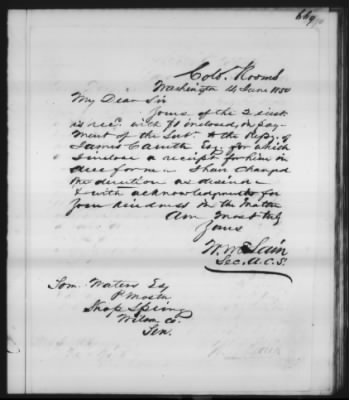 669
Colo. Rooms
Washington 14 June 1850
My Dear Sir
Yours of the 3 inst.
is recd. with $1 inclosed in pay-
ment of the Sub. to the Repy. of
James Caruth Esq. for which
I inclose a receipt for him in
due form. I have changed
the direction as desired
& with acknowledgments for
your kindness in the matter
Am most truly
Yours
W. McLain
Sec. A.C.S.
Tom. Waters Esq
P. Master
Shop Spring
Wilson Co.
Ten.